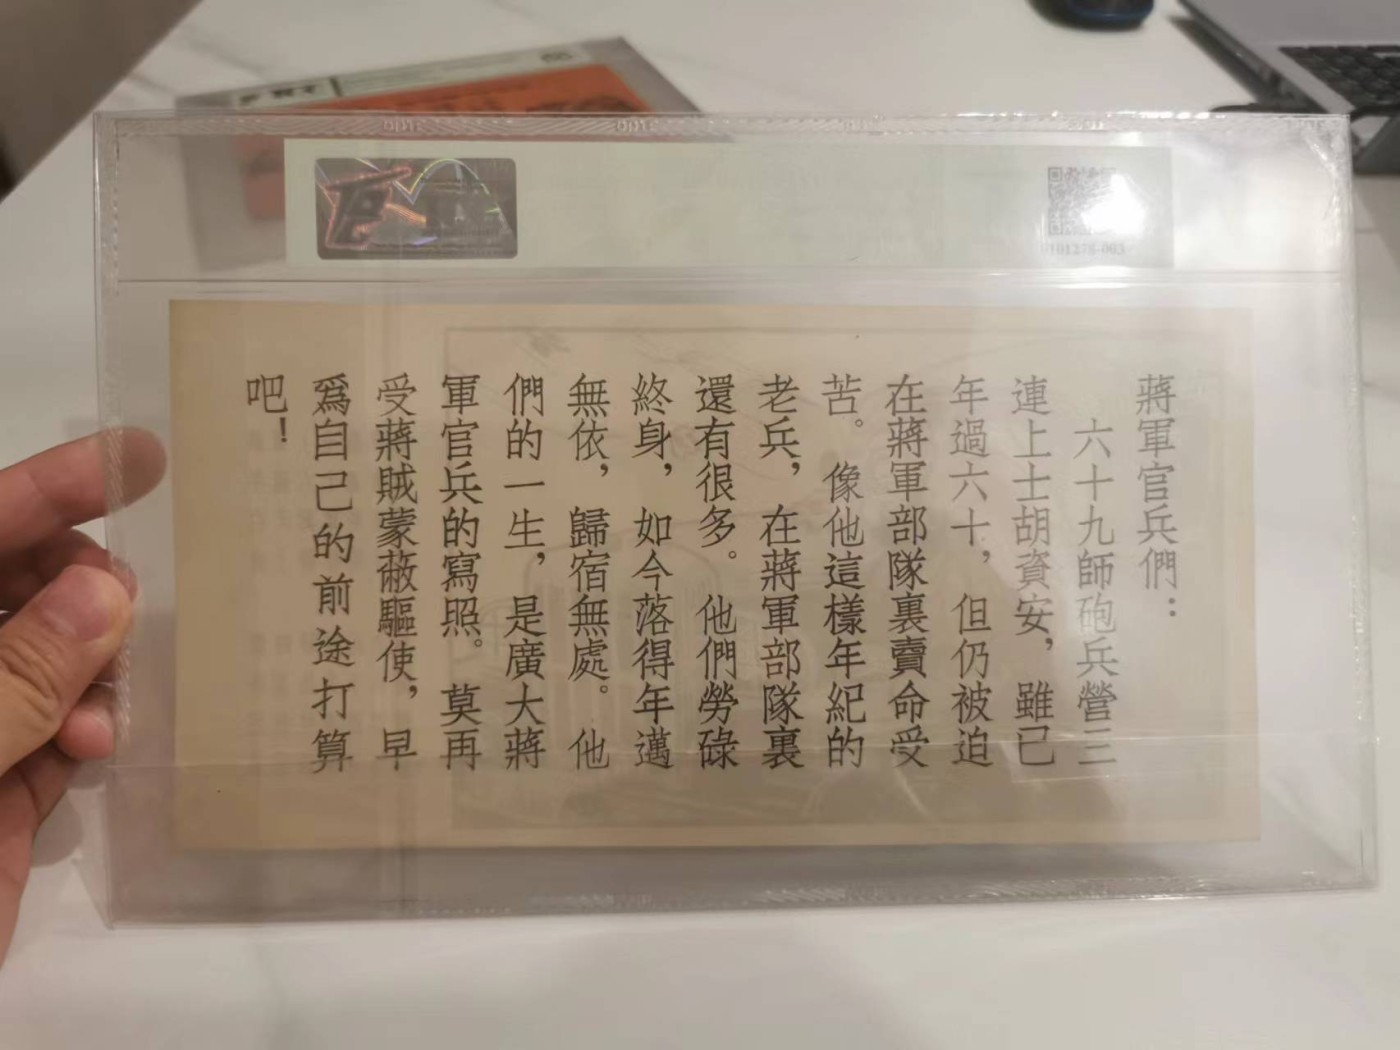 蔣軍官兵們：
六十九師砲兵營三
連上士胡資安，雖已
年過六十，但仍被迫
在蔣軍部隊裏賣命受
苦。像他這樣年紀的
老兵，在蔣軍部隊裏
還有很多。他們勞碌
終身，如今落得年邁
無依，歸宿無處。他
們的一生，是廣大蔣
軍官兵的寫照。莫再
受蔣賊蒙蔽驅使，早
爲自己的前途打算
吧！
0101278-003